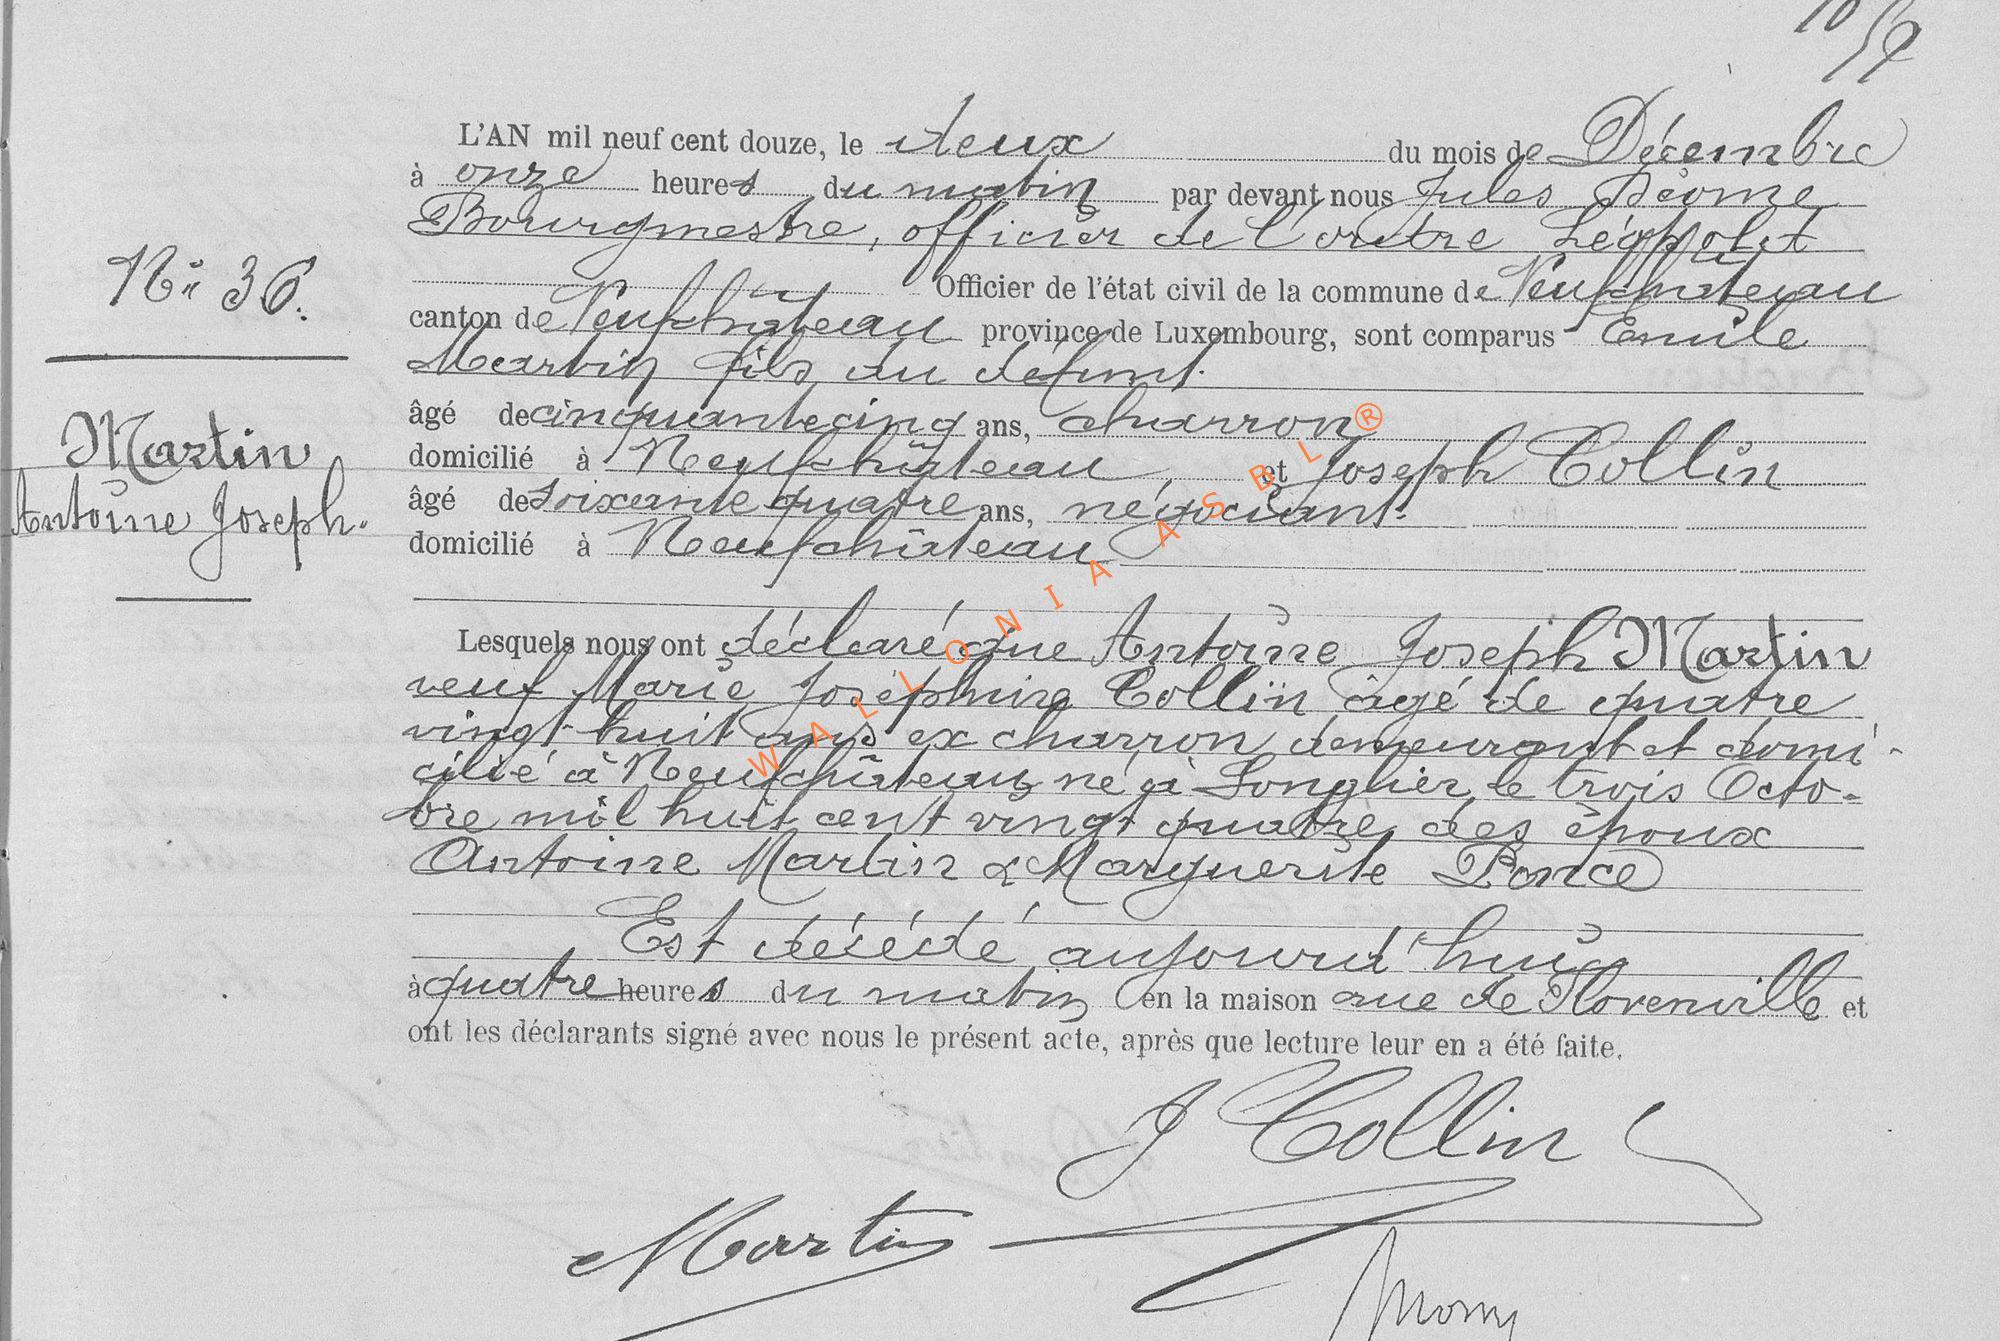 L'AN mil neuf cent douze, le deux du mois de Décembre
à onze heures du matin par devant nous Jules
Bourgmestre, officier de l'ordre Léopold
Officier de l'état civil de la commune de Neufchâteau
canton de Neufchâteau province de Luxembourg, sont comparus Emile
Martin fils du défunt.
âgé de cinquante cinq ans, charron
domicilié à Neufchâteau, et Joseph Collin
âgé de soixante quatre ans, négociant.
domicilié à Neufchâteau
No 36.
Martin
Antoine Joseph.
Lesquels nous ont déclaré que Antoine Joseph Martin
veuf Marie Joséphine Collin âgé de quatre
vingt huit ans ex charron, demeurant et domi-
cilié à Neufchâteau né à Longlier le trois Octo-
bre mil huit cent vingt quatre, des époux
Antoine Martin & Marguerite Ponce
Est décédé aujourd'hui
à quatre heures du matin en la maison rue de Florenville et
ont les déclarants signé avec nous le présent acte, après que lecture leur en a été faite.
J Collin
Martin
WALLONIA ASBL®